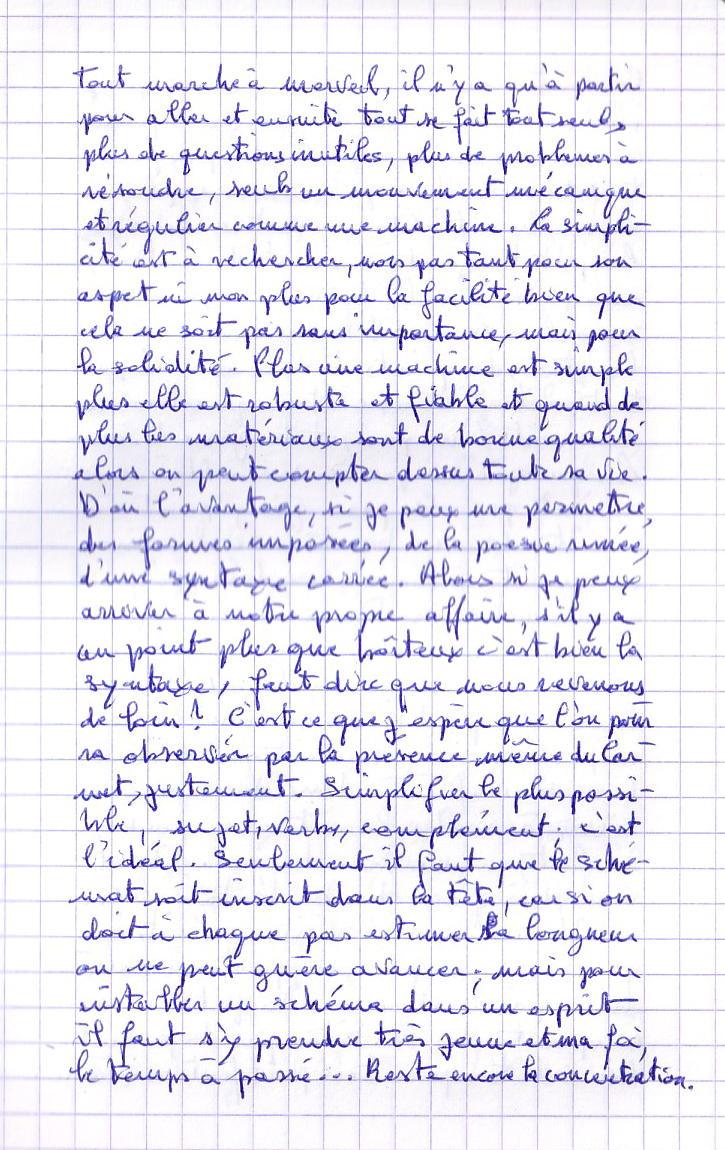 tout marche à merveil, il n'y a qu'à partir
pour aller et ensuite tout se fait tout seul,
plus de questions inutiles, plus de problèmes à
résoudre, seul un mouvement mécanique
et régulier comme une machine. La simpli-
cité est à rechercher, mais pas tant pour son
aspet ni non plus pour la facilité bien que
cela ne soit pas sans importance, mais pour
la solidité. Plus une machine est simple
plus elle est robuste et fiable et quand de
plus les matériaux sont de bonne qualité
alors on peut compter dessus toute sa vie.
D'où l'avantage, si je peux me permettre,
des formes imposées, de la poésie rimée,
d'une syntaxe carrée. Alors si je peux
arriver à notre propre affaire, s'il y a
un point plus que boîteux c'est bien la
syntaxe, faut dire que nous revenons
de loin! C'est ce que j'espère que l'on pour
ra observer par la présence même du Car-
net, justement. Simplifier le plus possi-
ble, sujet, verbe, complément; c'est
l'idéal. Seulement il faut que le sché-
mat soit inscrit dans la tête, car si on
doit à chaque pas estimer la longueur
on ne peut guère avancer; mais pour
installer un schéma dans un esprit
il faut s'y prendre très jeune et ma foi,
le temps à passé... Reste encore la concentration.